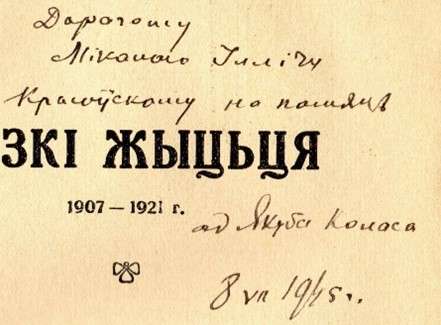 Дарагому
Міколаю Іллічу
Красоўскаму на памяць
ЗКІ ЖЫЦЬЦЯ
1907 — 1921 г.
ад Якуба Коласа
8 VII 1945 г.